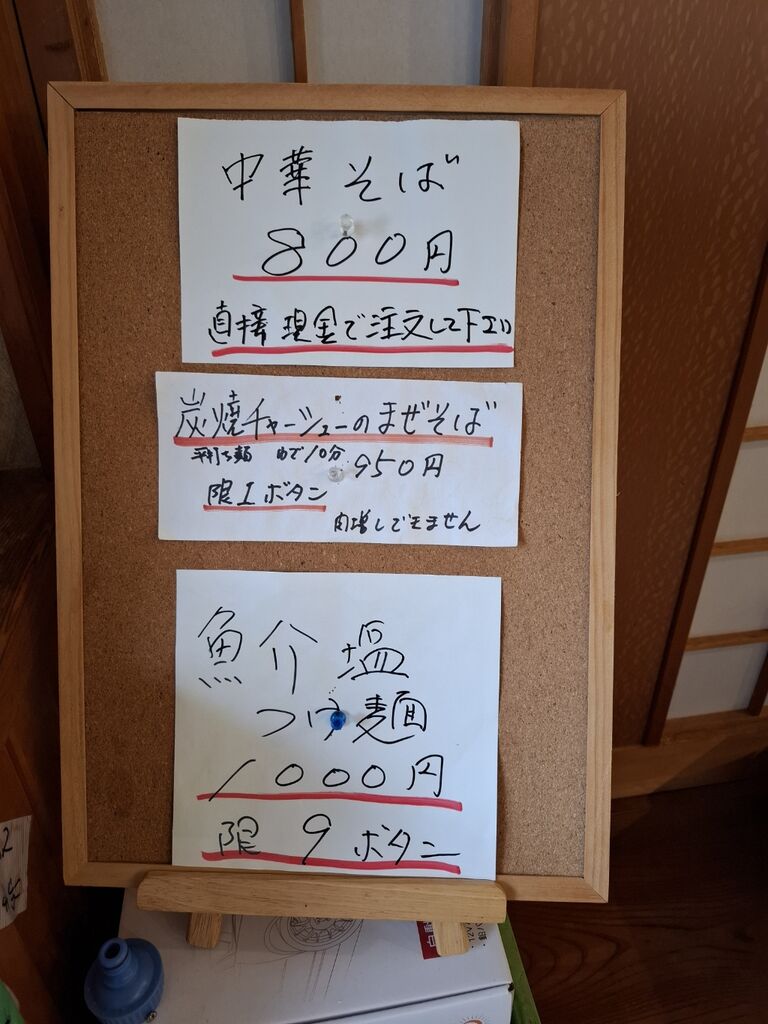 中華そば
800円
直接 現金で注文して下さい
炭焼チャーシューのまぜそば
平打ち麺 ゆで10分 950円
限1ボタン
肉増しできません
魚介塩
つけ麺
1000円
限9ボタン